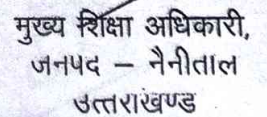 मुख्य शिक्षा अधिकारी,
जनपद – नैनीताल
उत्तराखण्ड